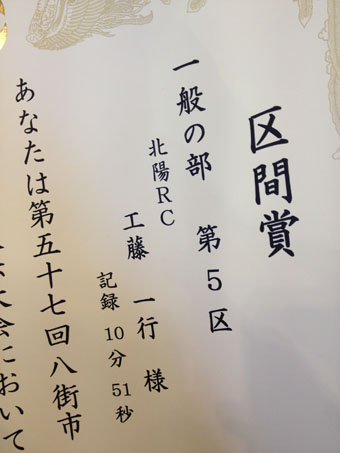 区間賞
一般の部 第5区
北陽RC
工藤 一行 様
記録 10分51秒
あなたは第五十七回八街市
大会において